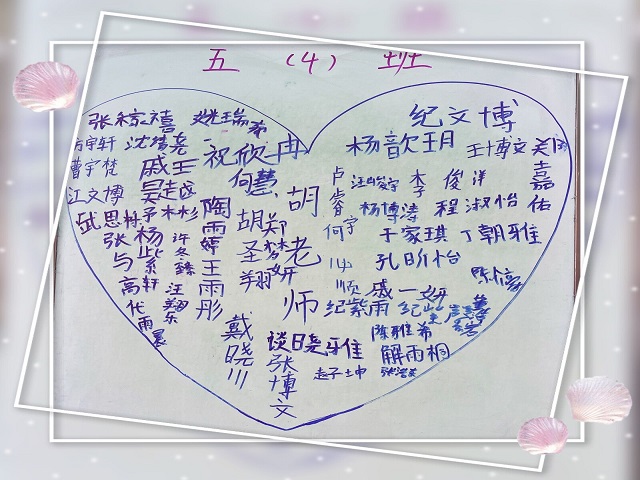 五（4）班
张综禧
姚瑞
纪文博
方宇轩
沈靖尧
祝欣冉
杨歆玥
王博文
曹宇梵
戚王
何慧
卢睿
汪峻宇
李俊洋
嘉佑
江文博
吴志远
胡老师
杨博涛
程淑怡
武思彤
陶雨婷
胡圣翔
郑梦妍
于家琪
丁朝雅
张与高
杨紫轩
许冬臻
王雨彤
孔昕怡
代雨晨
汪翔东
戚一妍
纪紫雨
戴晓川
谈晓雅
陈雅希
解雨桐
张博文
赵子坤